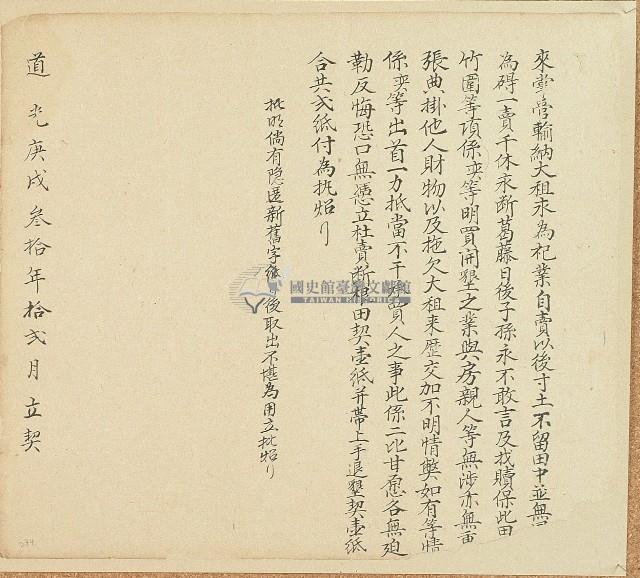 來掌管輸納大租永為祀業自賣以後寸土不留田中並無
為碍一賣千休永斷葛藤日後子孫永不敢言及找贖保此田
竹圍等項係奕等明買開墾之業與房親人等無涉亦無重
張典掛他人財物以及拖欠大租来歷交加不明情弊如有等情
係奕等出首一力抵當不干買人之事此係二比甘愿各無迫
勒反悔恐口無憑立杜賣断根田契壹紙并帶上手退墾契壹紙
合共弍紙付為批炤
批明倘有隐匿新舊字紙日後取出不堪為用立批炤
道光庚戌叁拾年拾弍月 立契
國史館臺灣文獻館
TAIWAN HISTORICA